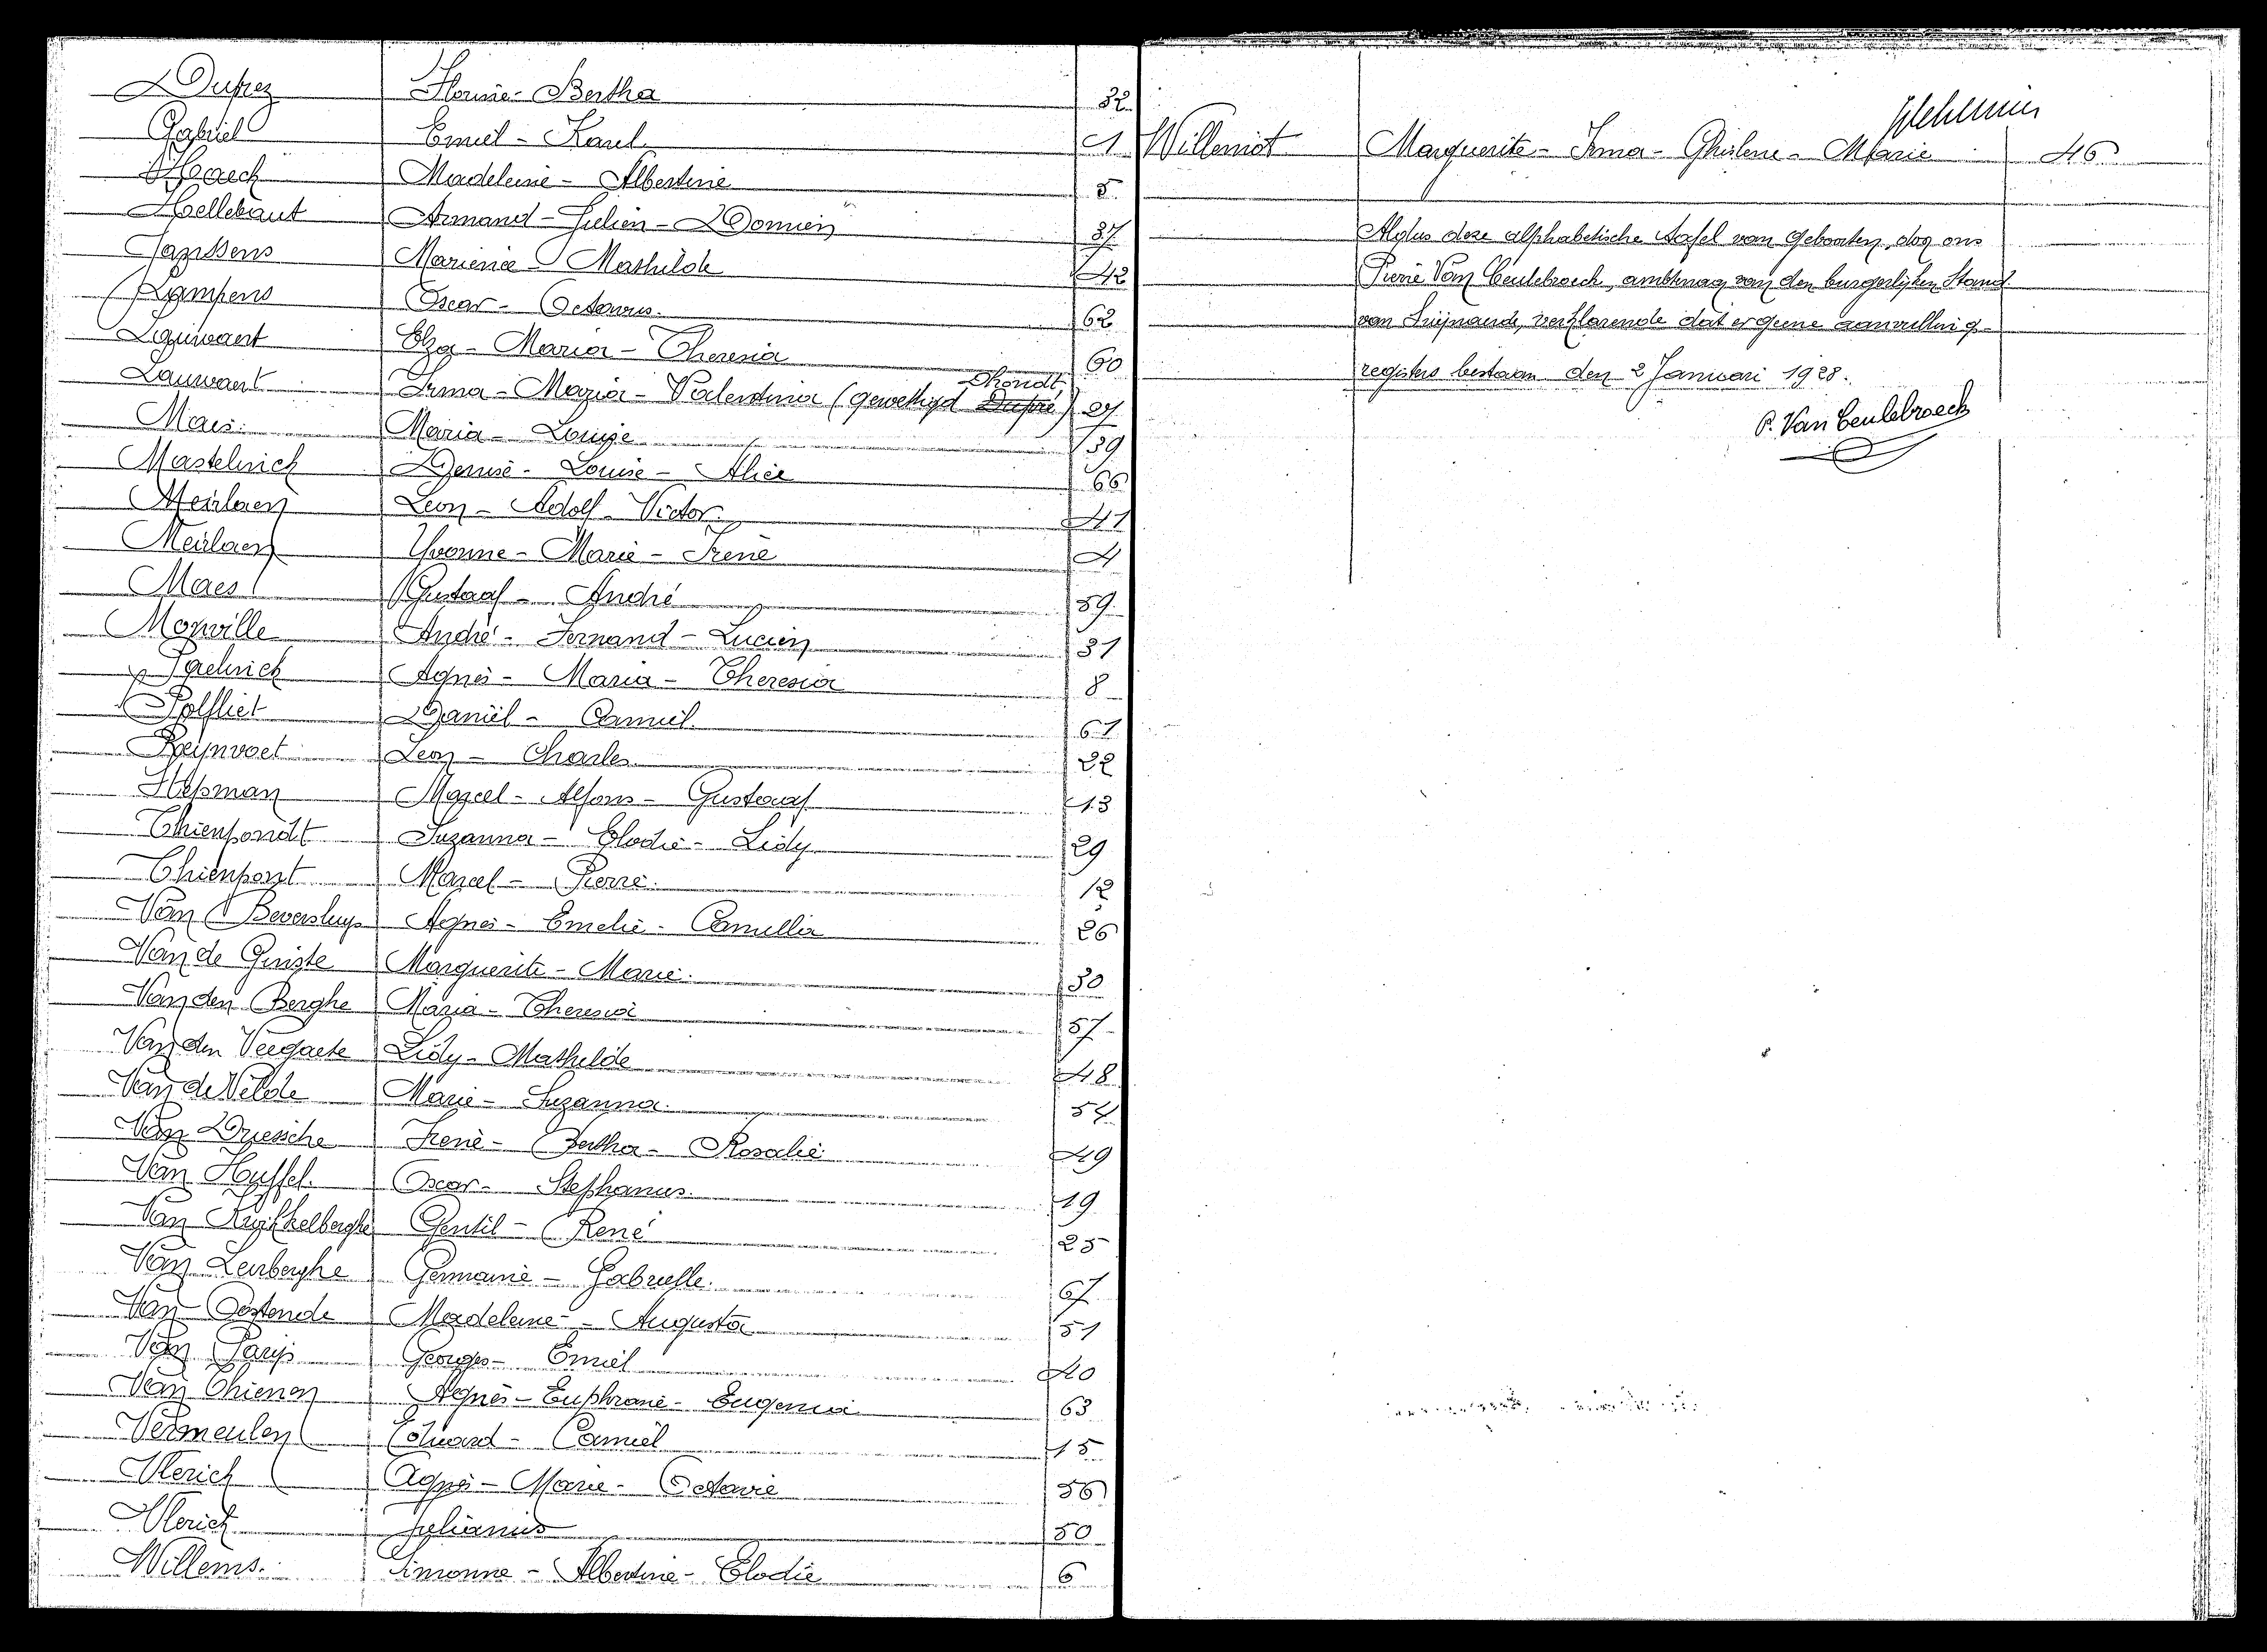 Dufrez Florine - Bertha 32
Gabriel Emiel - Karel 1
Haeck Madeleine - Albertine 5
Hellebaut Armand - Julien - Domien 37
Janssens Mariena - Mathilde 42
Kampens Oscar - Octavus. 62
Lauwaert Elza - Maria - Theresia 60
Lauwaert Irma - Maria - Valentina (gewettigd Dhondt) 27
Maes. Maria - Louise 39
Mastelinck Denise - Louise - Alice 66
Meirlaen Leon - Adolf - Victor. 41
Meirlaen Yvonne - Marie - Irene 4
Maes Gustaaf - André 59
Monville André - Fernand - Lucien 31
Paelinck Agnes - Maria - Theresia 8
Polfliet Daniël - Camiel. 61
Reijnvoet Leon - Charles 22
Marcel - Alfons - Gustaaf 13
Thienpondt Suzanna - Elodie - Lidy 29
Thienpont Marcel - Pierre. 12
Van Beversluys Agnes - Emelie - Camilla 26
Van de Ginste Marguerite - Marie. 30
Van den Berghe Maria - Theresia 57
Van den Veegaete Lidy - Mathilde 48
Van de Velde Marie - Suzanna. 54
Van Driessche Irene - Bertha - Rosalie 49
Van Hyffel. Oscar - Stephanus. 19
Van Gentil - René 25
Van Leirberghe Germaine - Gabrielle. 67
Van Oostende Madeleine - Augusta 51
Van Parijs Georges - Emiel 40
Van Thienen Agnes - Euphranie - Eugenia 63
Vermeulen Eduard - Camiel 15
Vlerick Agnes - Marie - Octavie 56
Vlerick Julianus 50
Willems. Simonne - Albertine - Elodie 6
Willemot Marguerite - Irma - Ghislene - Marie 46
Aldus deze alphabetische tafel van Geboorten, door ons
Pierre Van Ceulebroeck, ambtenaar van den burgerlijken Stand
van Zwijnaarde, verklarende dat er geene aanvulling-
registers bestaan den 2 Januari 1928.
P. Van Ceulebroeck